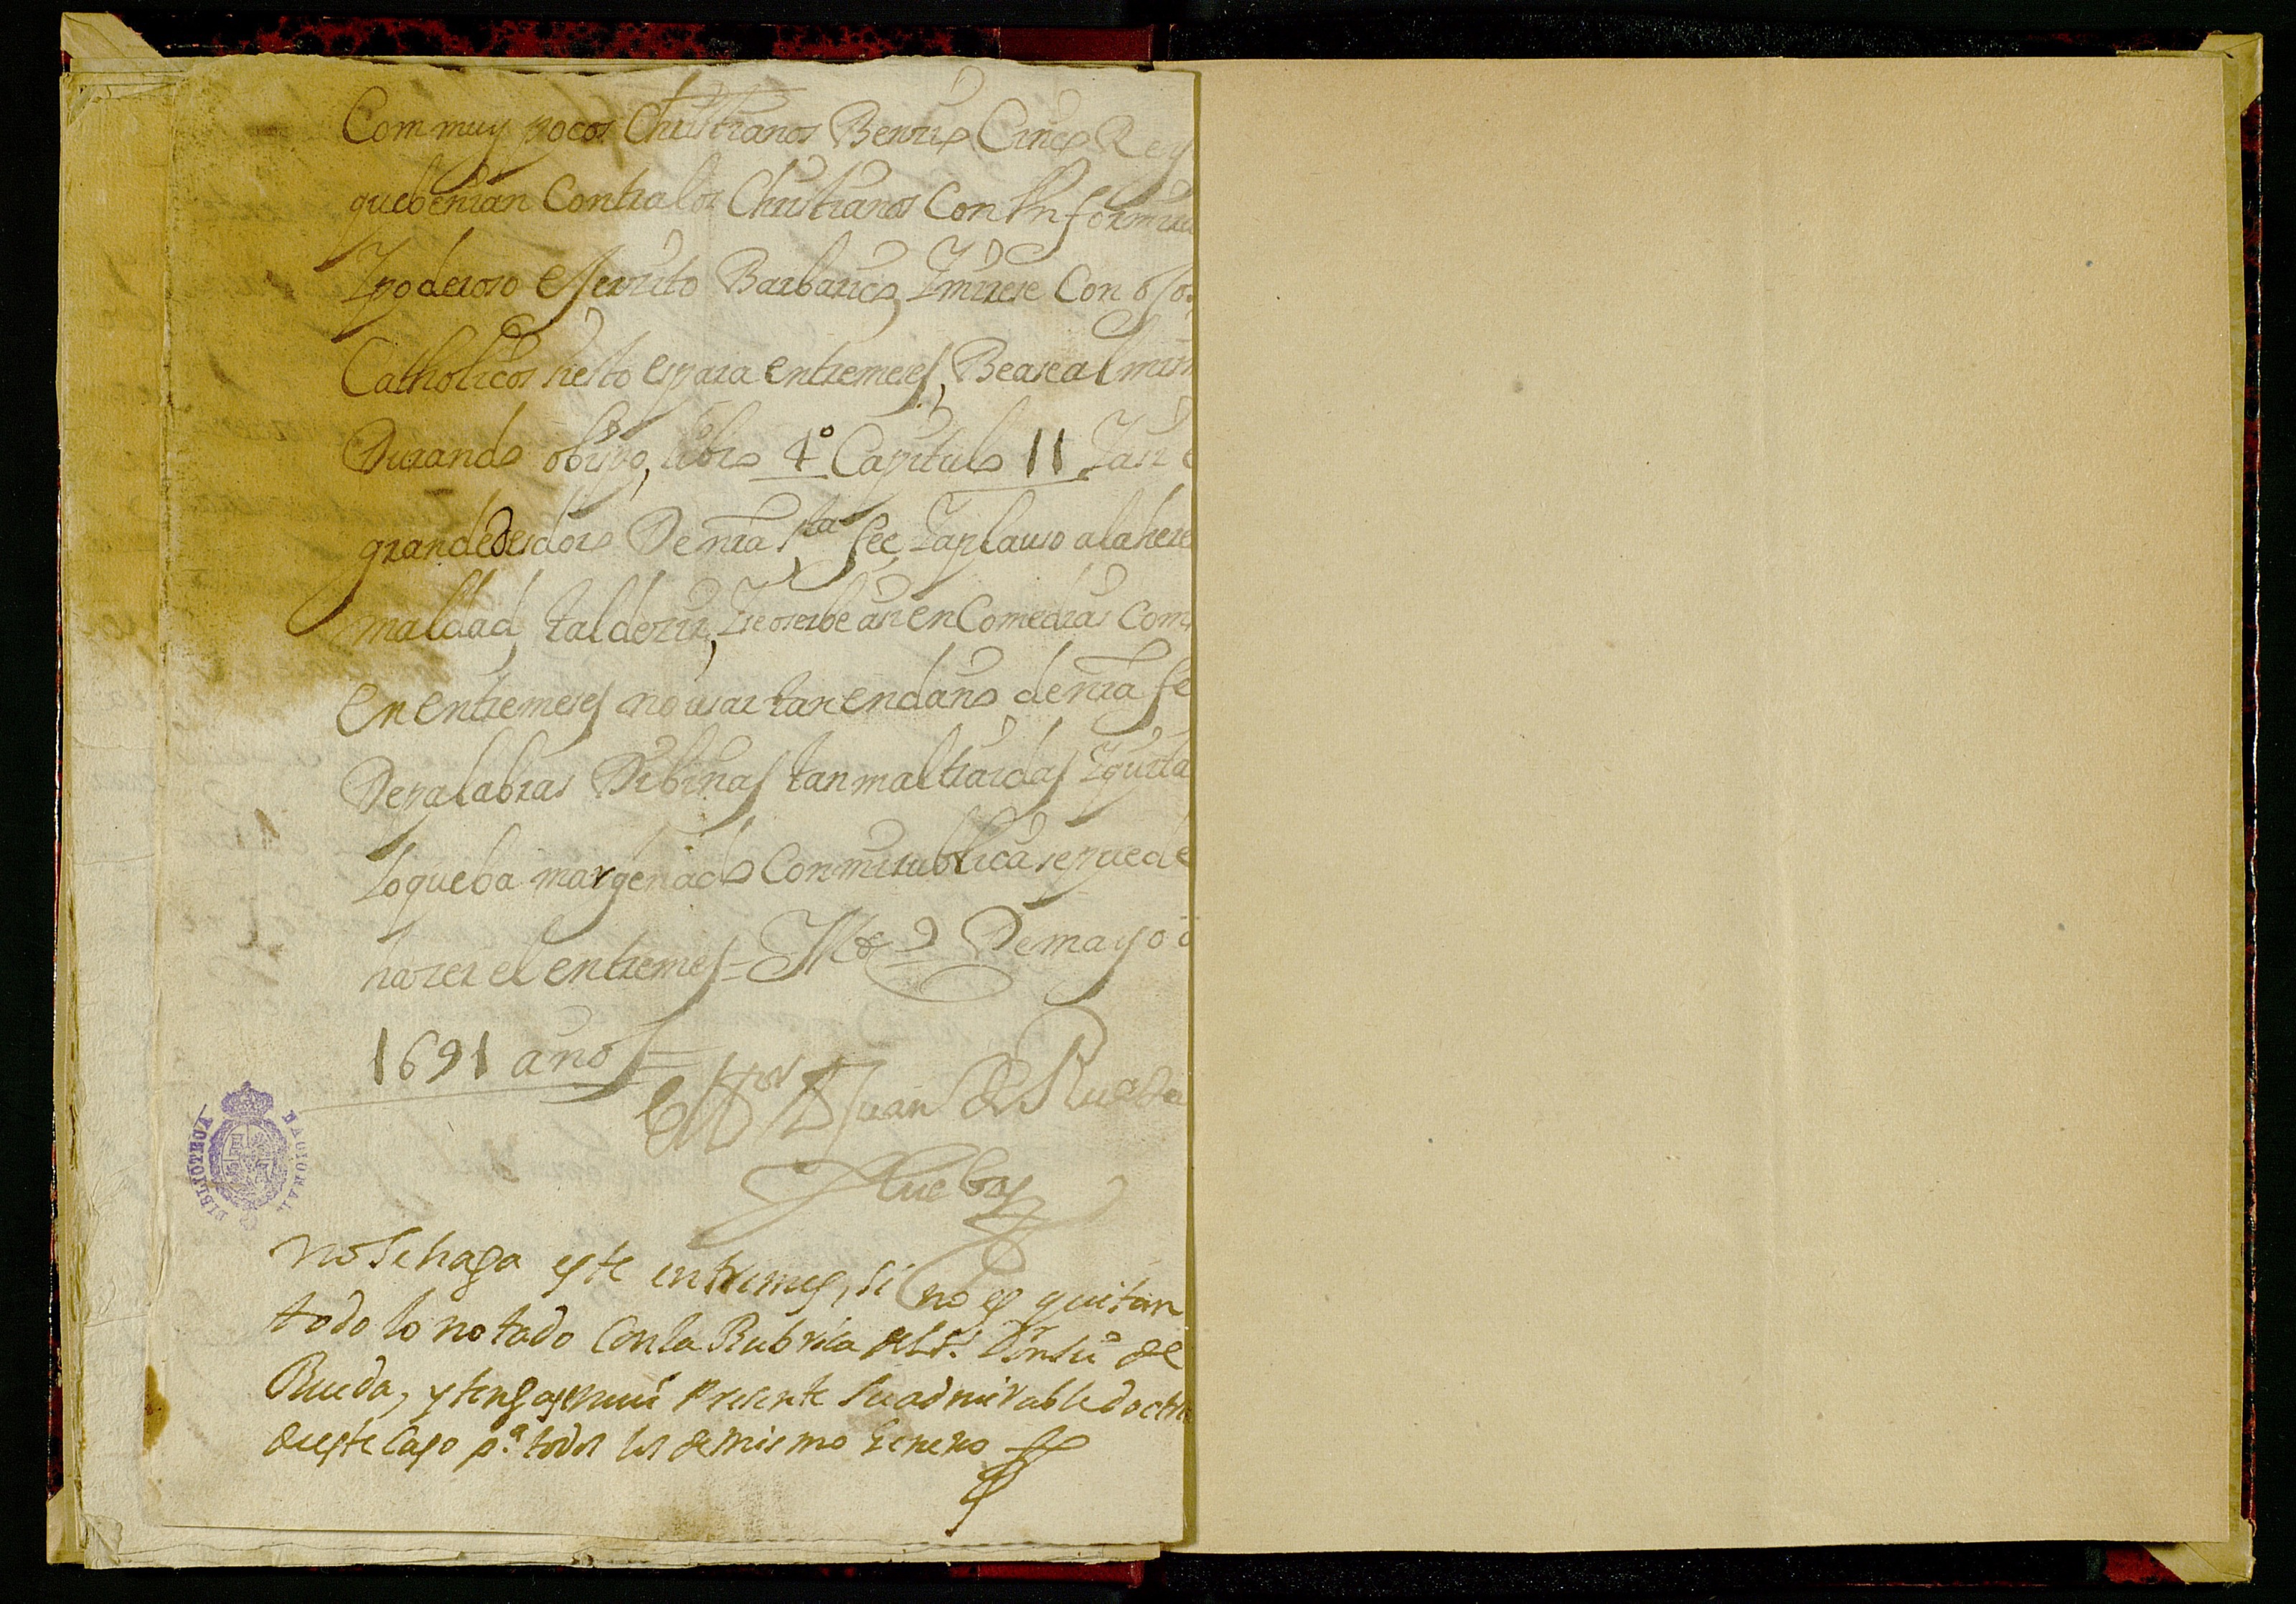 Com muy pocos Christianos Benzio Cinco Rey
que benian Contra los Christianos Con Un formida
Y poderoso exerzito Barbarico, Y mirese Con ojos
Catholicos si esto es para entremeses, Bease al
Durando obispo, libro 4º Capitulo 11 Y asi
grande desdoro De nra Sta fee, Y aplauso a la here
maldad, tal dezir, Y se oserbe asi en Comedias Com
en entremeses no usar tan en daño de nra fe
De palabras Dibinas tan mal traidas Y quita
lo que ba margenado Con mi rubrica se puede
hazer el entremes = De mayo
1691 años =
Juan de Rueda
Cuebas
no se haga este entremes, si no es quitan
todo lo notado Con la Rubrica del Sr. Dn Juº de
Rueda, y tengase mui presente su admirable doctri
de este Caso p.ª todos los de mismo genero
BIBLIOTECA NACIONAL